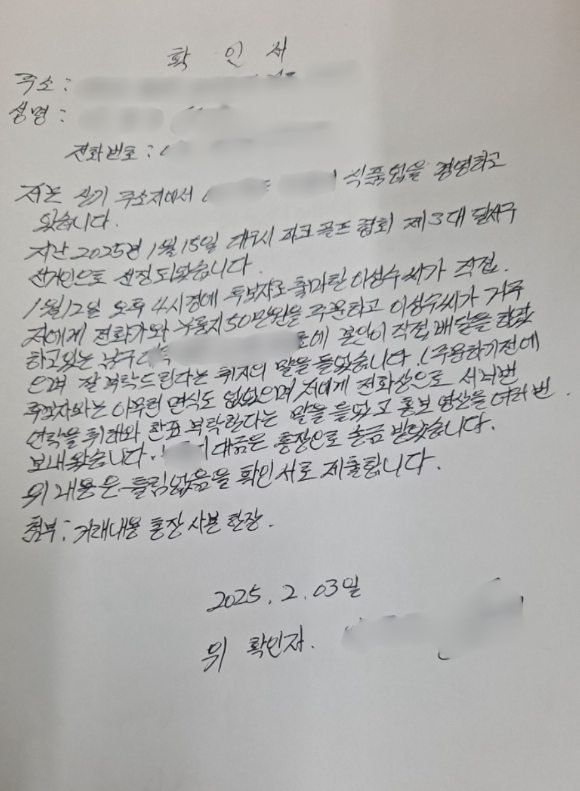 확 인 서
주소 :
성명 :
전화번호 :
저는 상기 주소지에서 식품업을 경영하고
있습니다.
지난 2025년 1월 15일 대구시 파크골프협회 제3대 달서구
선거인으로 선정되었습니다.
1월 12일 오후 4시경에 후보자로 출마한 이성수씨가 직접
저에게 전화가와 50만원을 주문하고 이성수씨가 거주
하고있는 남구 에 본인이 직접 배달을 갔었
으며 잘 부탁드린다는 취지의 말을 들었습니다. (주문하기전에
후보자와는 아무런 면식도 없었으며 저에게 전화상으로 서너번
연락을 취해와 한표 부탁한다는 말을 들었고 홍보 영상을 여러 번
보내왔습니다. 대금은 통장으로 송금 받았습니다.
위 내용은 틀림없음을 확인서로 제출합니다.
첨부 : 거래내용 통장 사본 한장.
2025. 2. 03일
위 확인자.